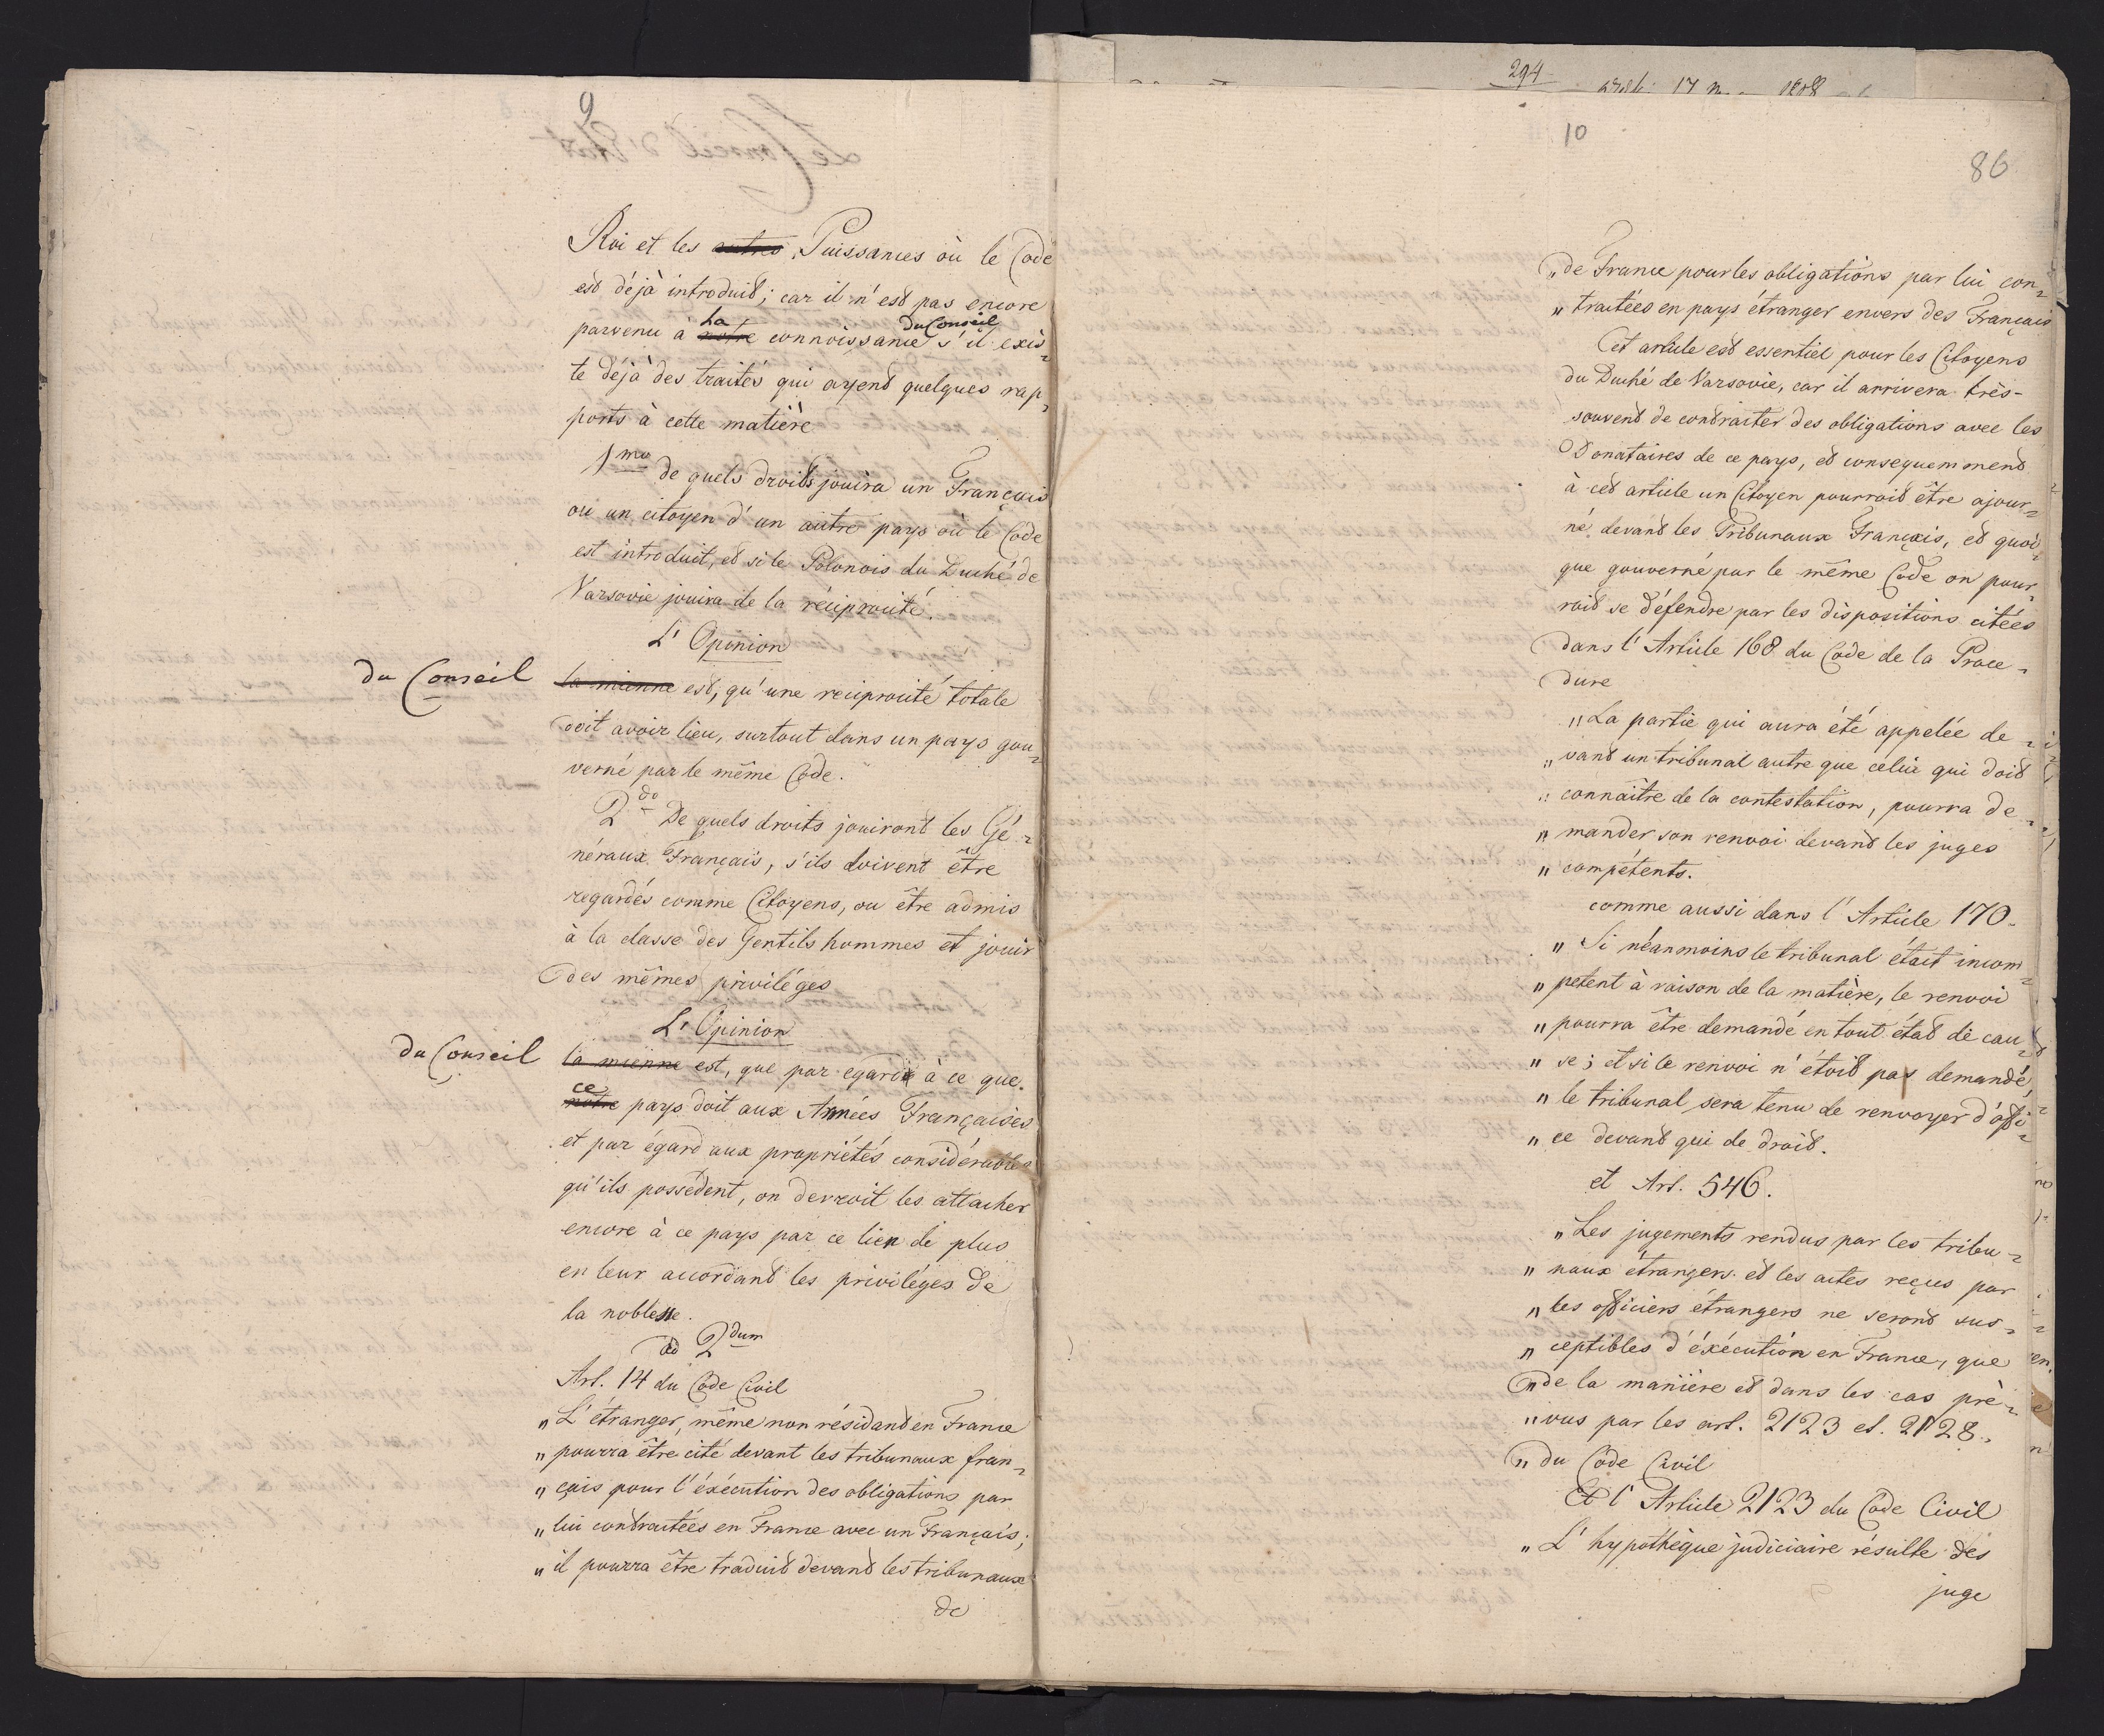 9
Roi et les autres Puissances où le Code
est déjà introduit; car il n'est pas encore
parvenu à notre la connoissance du Conseil s'il exis-
te déjà des traités qui ayent quelques rap-
ports à cette matière
1mo de quels droits jouira un Français
ou un citoyen d'un autre pays où le Code
est introduit, et si le Polonois du Duché de
Varsovie jouira de la réciprocité.
L'Opinion
du Conseil la mienne est, qu'une reciprocité totale
doit avoir lieu, surtout dans un pays gou-
verné par le même Code.
2do De quels droits jouiront les Gé-
néraux Français, s'ils doivent être
regardés comme Citoyens, ou être admis
à la classe des Gentils hommes et jouir
des mêmes privilèges
L'Opinion
du Conseil la mienne est, que par egard à ce que
notre ce pays doit aux Armées Françaises
et par égard aux propriétés considérables
qu'ils possèdent, on devroit les attacher
encore à ce pays par ce lien de plus
en leur accordant les privilèges de
la noblesse.
ad 2dum
Art. 14 du Code Civil
„ L'étranger, même non résidant en France
„ pourra être cité devant les tribunaux fran-
„ çais pour l'éxécution des obligations par
„ lui contractées en France avec un Français;
„ il pourra être traduit devant les tribunaux
de
294
17 1808
10
86
„ de France pour les obligations par lui con-
„ tractées en pays étranger envers des Français
Cet article est essentiel pour les Citoyens
du Duché de Varsovie, car il arrivera très-
souvent de contracter des obligations avec les
Donataires de ce pays, et consequemment
à cet article un Citoyen pourroit être ajour-
né devant les Tribunaux Français, et quoi-
que gouverné par le même Code on pour-
roit se défendre par les dispositions citées
dans l'Article 168 du Code de la Proce-
dure
„ La partie qui aura été appelée de-
„ vant un tribunal autre que celui qui doit
„ connaître de la contestation, pourra de-
„ mander son renvoi devant les juges
„ compétents.
comme aussi dans l'Article 170.
„ Si néanmoins le tribunal était incom-
„ petent à raison de la matière, le renvoi
„ pourra être demandé en tout état de cau-
„ se; et si le renvoi n'étoit pas demandé,
„ le tribunal sera tenu de renvoyer d'offi-
„ ce devant qui de droit.
et Art. 546.
„ Les jugements rendus par les tribu-
„ naux étrangers et les actes reçus par
„ les officiers étrangers ne seront sus-
„ ceptibles d'éxécution en France, que
„ de la manière et dans les cas pré-
„ vus par les art. 2123 et. 2128.
„ du Code Civil
Et l'Article 2123 du Code Civil
„ L'hypothèque judiciaire résulte des
juge